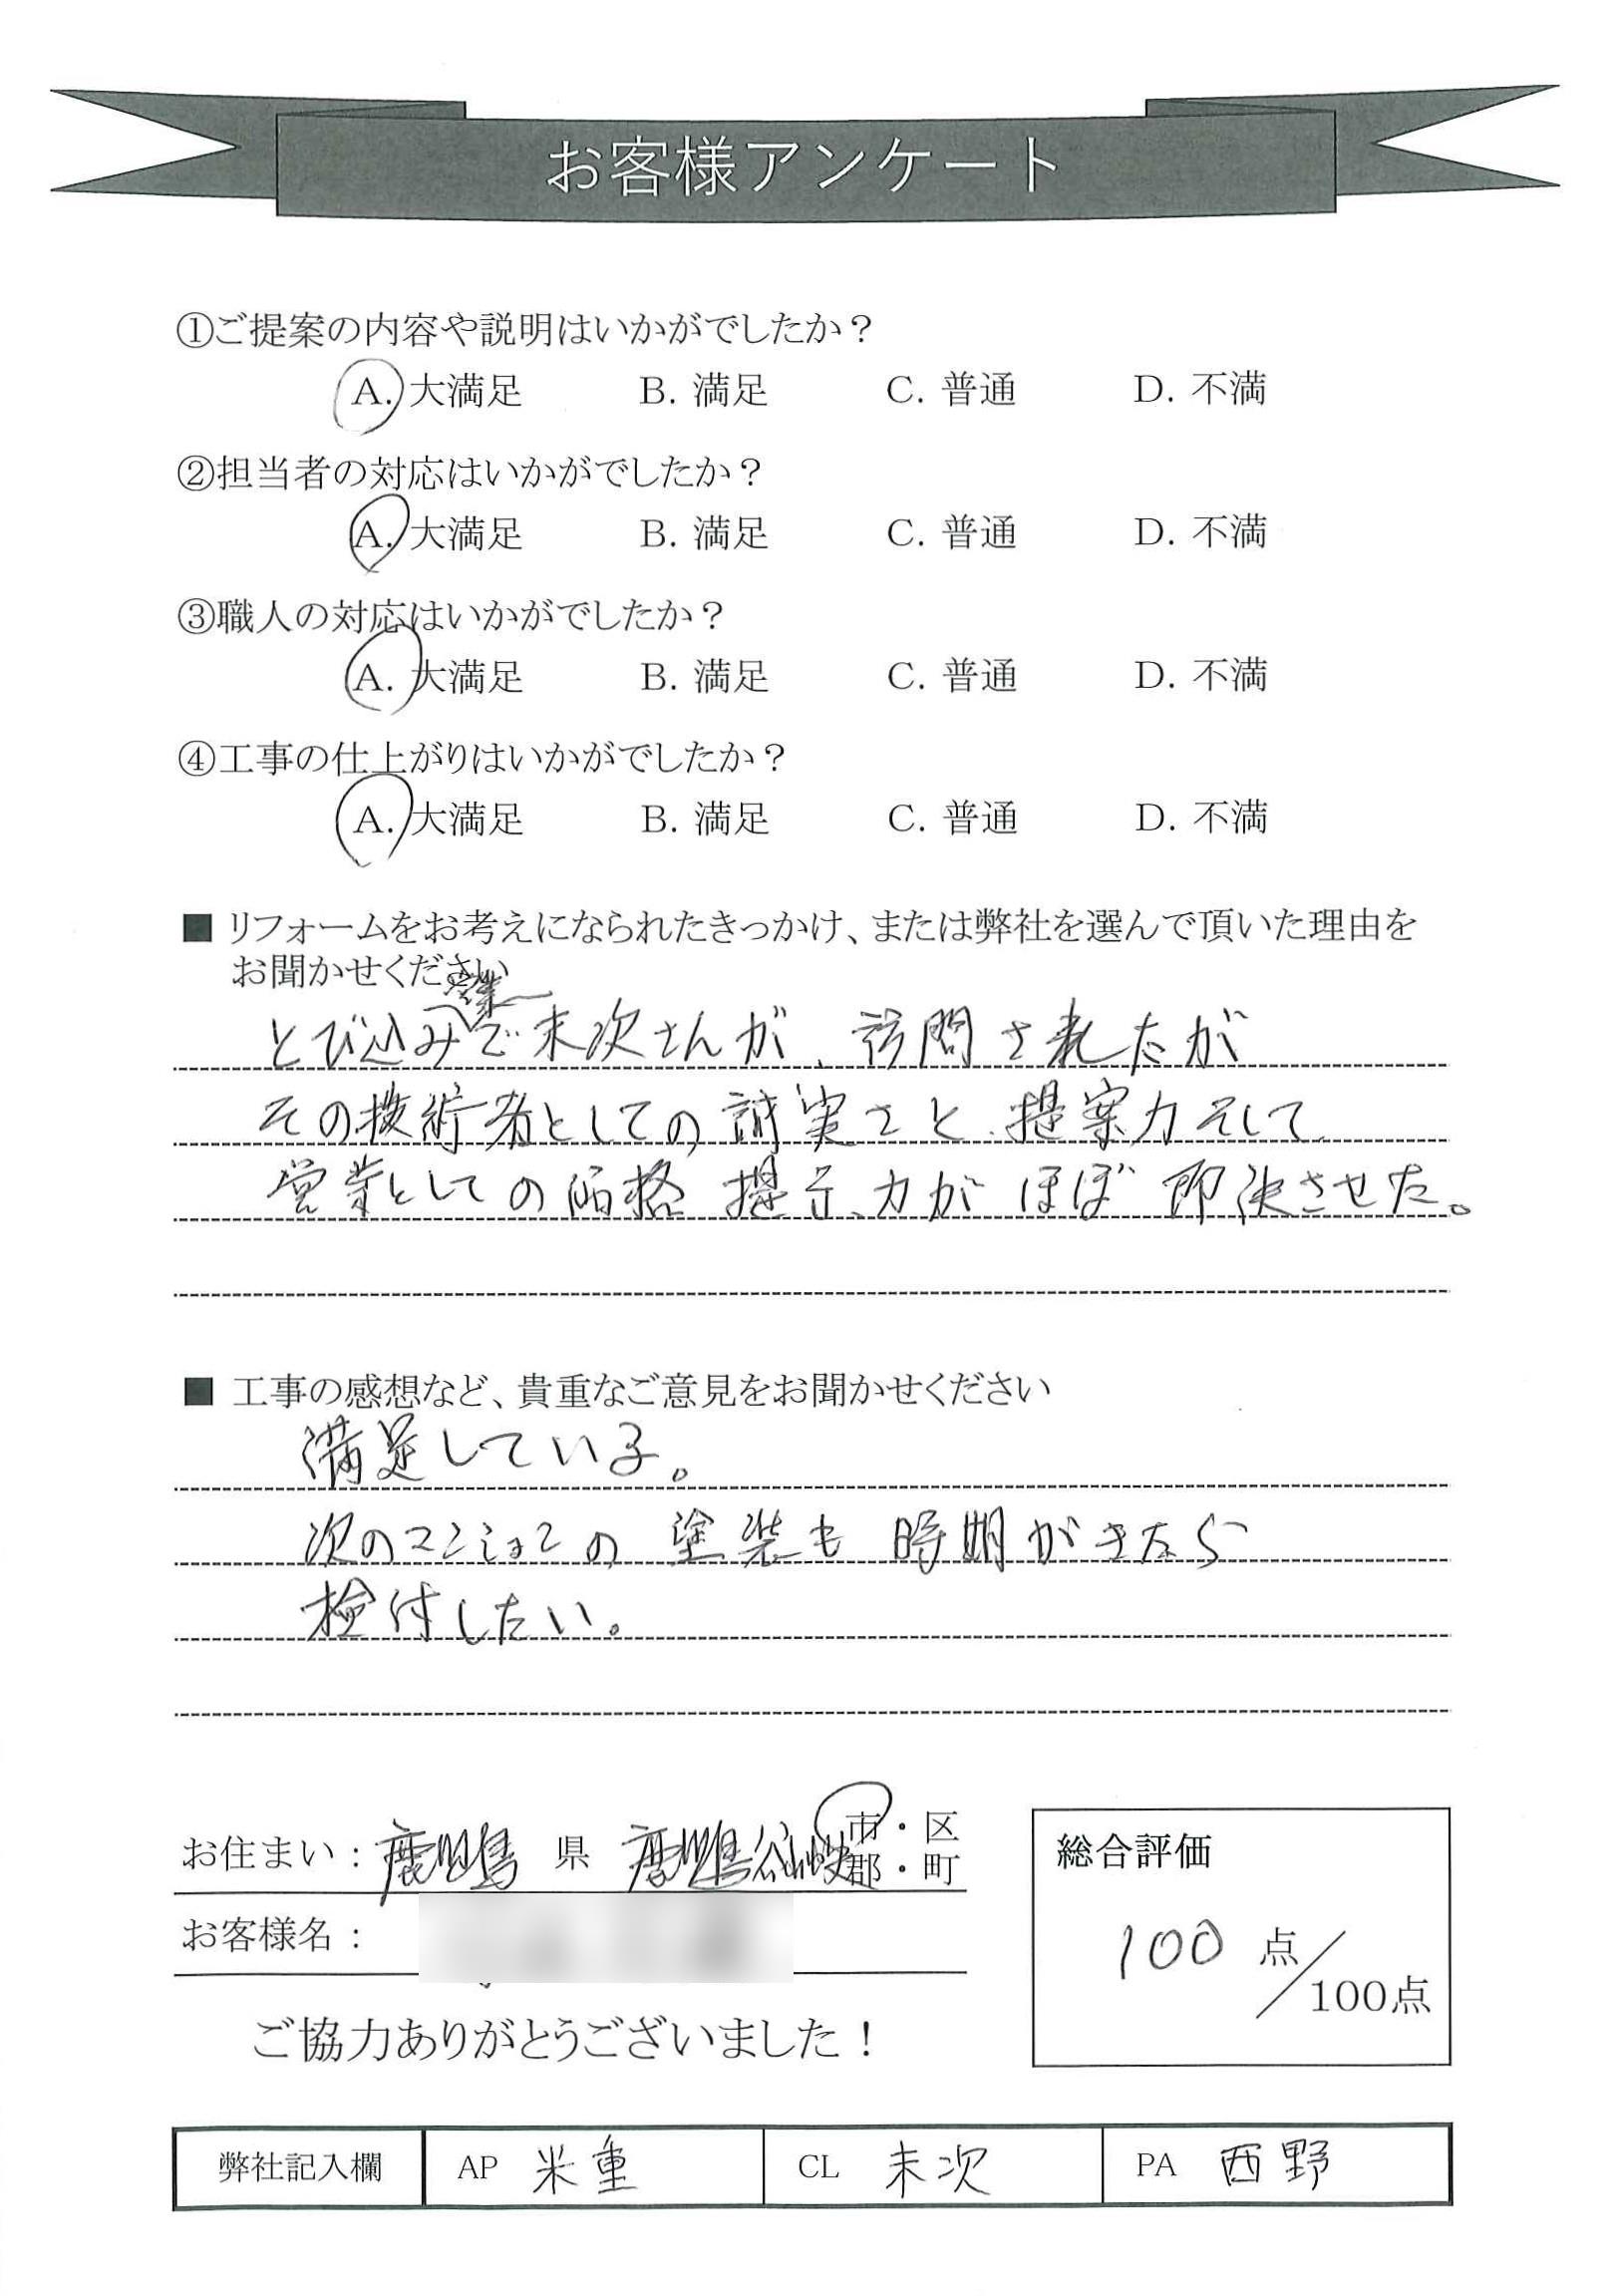 お客様アンケート
①ご提案の内容や説明はいかがでしたか？
A. 大満足 B. 満足 C. 普通 D. 不満
②担当者の対応はいかがでしたか？
A. 大満足 B. 満足 C. 普通 D. 不満
③職人の対応はいかがでしたか？
A. 大満足 B. 満足 C. 普通 D. 不満
④工事の仕上がりはいかがでしたか？
A. 大満足 B. 満足 C. 普通 D. 不満
■ リフォームをお考えになられたきっかけ、または弊社を選んで頂いた理由を
お聞かせください
とび込み営業で末次さんが、訪問されたが
その技術者としての誠実さと、提案力そして
営業としての価格提示力がほぼ即決させた。
■ 工事の感想など、貴重なご意見をお聞かせください
満足している。
次のマンションの塗装も時期がきたら
検付したい。
お住まい：鹿児島 県 鹿児島 市・区
郡・町
お客様名：
総合評価
100 点／100点
ご協力ありがとうございました！
弊社記入欄 AP 米重 CL 末次 PA 西野